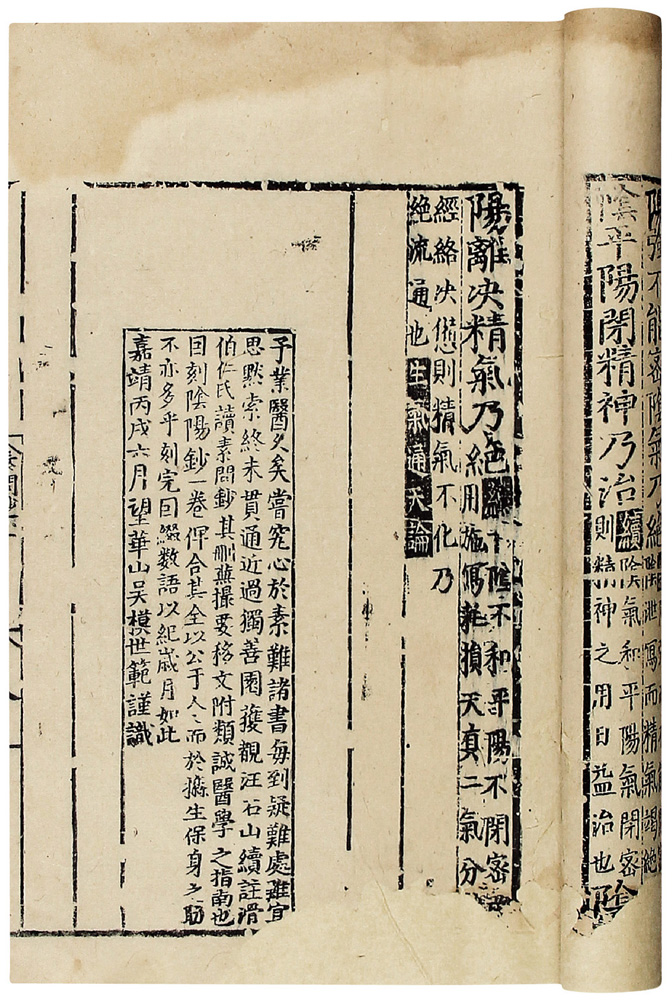 陽強不能密陰氣乃絕
陰泄瀉而精氣竭絕
陰平陽閉精神乃治續陰氣和平陽氣閉密
則精神之用日益治也陰
陽離决精氣乃絕續下陰不和平陽不閉密
用施瀉耗損天真二氣分
經絡决憊則精氣不化乃
絕流通也生氣通天論
予業醫久矣嘗究心於素難諸書每到疑難處雖宜
思默索終未貫通近過獨善園獲觀汪石山續註滑
伯仁氏讀素問鈔其刪蕪撮要移文附類誠醫學之指南也
因刻陰陽鈔一卷俾合其全以公于人人而於攝生保身之助
不亦多乎刻完因綴数語以紀歲月如此
嘉靖丙戌六月望華山吳模世範謹識